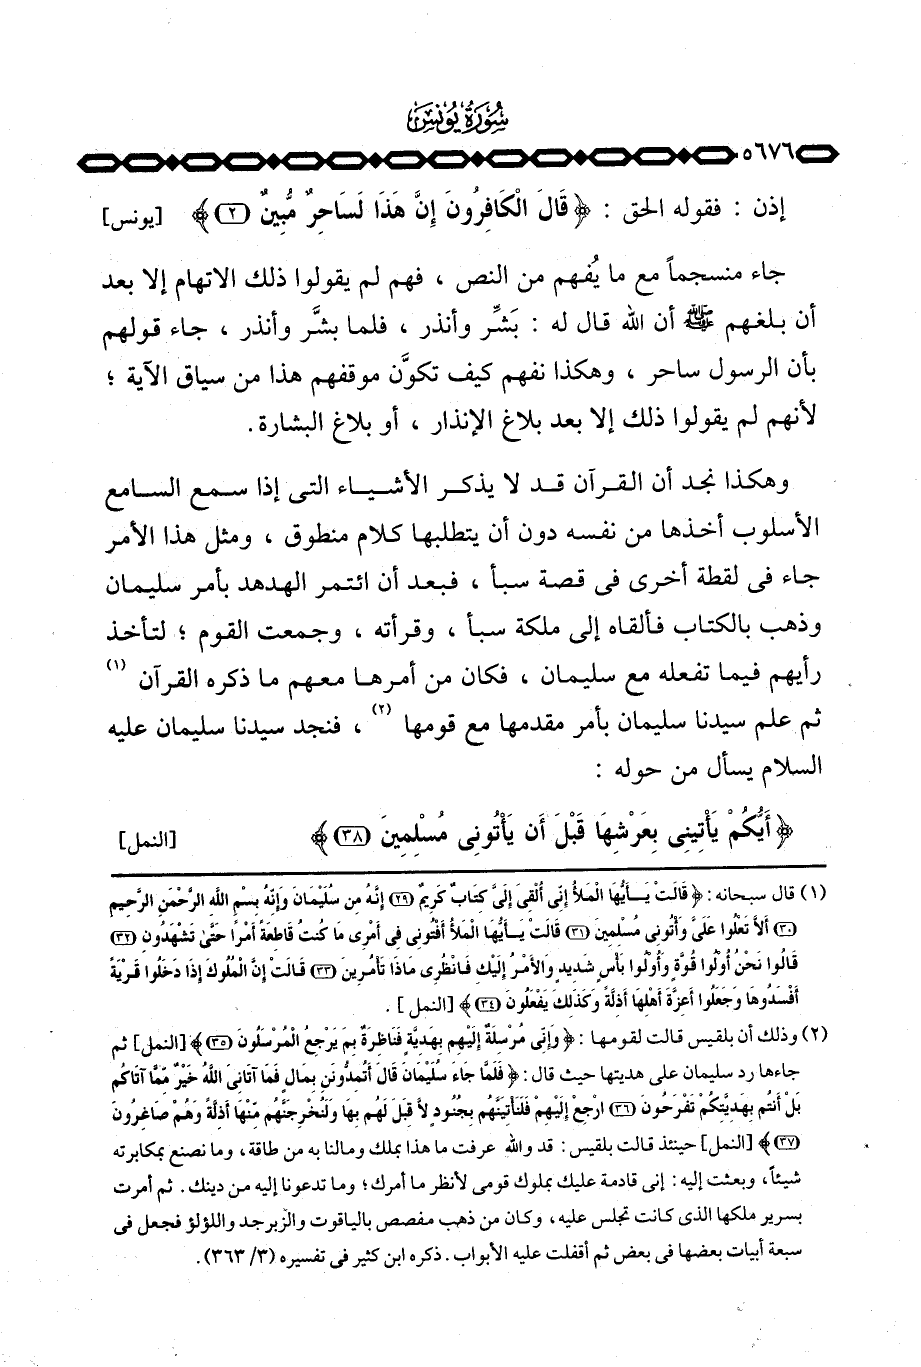 سُورَةُ يُونُسَ
٥٦٧٦
إذن : فقوله الحق : ﴿ قَالَ الْكَافِرُونَ إِنَّ هَذَا لَسَاحِرٌ مُّبِينٌ (٢) ﴾ [يونس]
جاء منسجماً مع ما يُفهم من النص ، فهم لم يقولوا ذلك الاتهام إلا بعد
أن بلغهم ﷺ أن الله قال له : بَشِّر وأنذر ، فلما بشَّر وأنذر ، جاء قولهم
بأن الرسول ساحر ، وهكذا نفهم كيف تكوَّن موقفهم هذا من سياق الآية ؛
لأنهم لم يقولوا ذلك إلا بعد بلاغ الإنذار ، أو بلاغ البشارة.
وهكذا نجد أن القرآن قد لا يذكر الأشياء التى إذا سمع السامع
الأسلوب أخذها من نفسه دون أن يتطلبها كلام منطوق ، ومثل هذا الأمر
جاء فى لقطة أخرى فى قصة سبأ ، فبعد أن ائتمر الهدهد بأمر سليمان
وذهب بالكتاب فألقاه إلى ملكة سبأ ، وقرأته ، وجمعت القوم ؛ لتأخذ
رأيهم فيما تفعله مع سليمان ، فكان من أمرها معهم ما ذكره القرآن (١)
ثم علم سيدنا سليمان بأمر مقدمها مع قومها (٢) ، فنجد سيدنا سليمان عليه
السلام يسأل من حوله :
﴿ أَيُّكُمْ يَأْتِينِى بِعَرْشِهَا قَبْلَ أَن يَأْتُونِى مُسْلِمِينَ (٣٨) ﴾ [النمل]
(١) قال سبحانه : ﴿ قَالَتْ يَـأَيُّهَا الْمَلأُ إِنِّى أُلْقِىَ إِلَىَّ كِتَابٌ كَرِيمٌ (٢٩) إِنَّهُ مِن سُلَيْمَانَ وَإِنَّهُ بِسْمِ اللهِ الرَّحْمَنِ الرَّحِيمِ
(٣٠) أَلاَّ تَعْلُوا عَلَىَّ وَأْتُونِى مُسْلِمِينَ (٣١) قَالَتْ يَـأَيُّهَا الْمَلأُ أَفْتُونِى فِى أَمْرِى مَا كُنتُ قَاطِعَةً أَمْرًا حَتَّىٰ تَشْهَدُونِ (٣٢)
قَالُوا نَحْنُ أُولُوا قُوَّةٍ وَأُولُوا بَأْسٍ شَدِيدٍ وَالأَمْرُ إِلَيْكِ فَانظُرِى مَاذَا تَأْمُرِينَ (٣٣) قَالَتْ إِنَّ الْمُلُوكَ إِذَا دَخَلُوا قَرْيَةً
أَفْسَدُوهَا وَجَعَلُوا أَعِزَّةَ أَهْلِهَا أَذِلَّةً وَكَذَلِكَ يَفْعَلُونَ (٣٤) ﴾ [النمل] .
(٢) وذلك أن بلقيس قالت لقومها : ﴿ وَإِنِّى مُرْسِلَةٌ إِلَيْهِم بِهَدِيَّةٍ فَنَاظِرَةٌ بِمَ يَرْجِعُ الْمُرْسَلُونَ (٣٥) ﴾ [النمل] ثم
جاءها رد سليمان على هديتها حيث قال : ﴿ فَلَمَّا جَاءَ سُلَيْمَانَ قَالَ أَتُمِدُّونَنِ بِمَالٍ فَمَا آتَانِىَ اللهُ خَيْرٌ مِّمَّا آتَاكُم
بَلْ أَنتُم بِهَدِيَّتِكُمْ تَفْرَحُونَ (٣٦) ارْجِعْ إِلَيْهِمْ فَلَنَأْتِيَنَّهُم بِجُنُودٍ لاَّ قِبَلَ لَهُم بِهَا وَلَنُخْرِجَنَّهُم مِّنْهَا أَذِلَّةً وَهُمْ صَاغِرُونَ
(٣٧) ﴾ [النمل] حينئذ قالت بلقيس : قد والله عرفت ما هذا بملك ومالنا به من طاقة، وما نصنع بمكابرته
شيئاً، وبعثت إليه : إنى قادمة عليك بملوك قومى لأنظر ما أمرك؛ وما تدعونا إليه من دينك . ثم أمرت
بسرير ملكها الذى كانت تجلس عليه، وكان من ذهب مفصص بالياقوت والزبرجد واللؤلؤ فجعل فى
سبعة أبيات بعضها فى بعض ثم أقفلت عليه الأبواب . ذكره ابن كثير فى تفسيره (٣/ ٣٦٣).